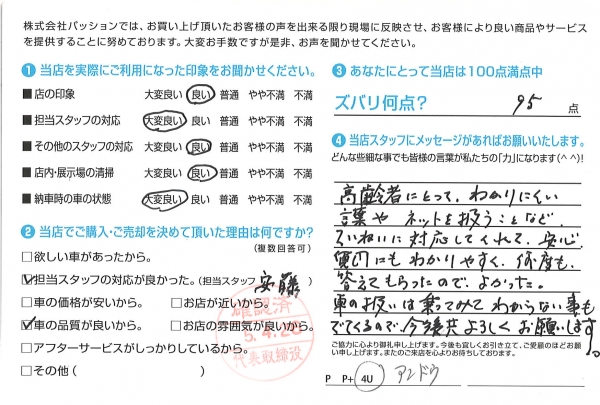 株式会社パッションでは、お買い上げ頂いたお客様の声を出来る限り現場に反映させ、お客様により良い商品やサービス
を提供することに努めております。大変お手数ですが是非、お声を聞かせてください。
❶ 当店を実際にご利用になった印象をお聞かせください。
■店の印象 大変良い 良い 普通 やや不満 不満
■担当スタッフの対応 大変良い 良い 普通 やや不満 不満
■その他のスタッフの対応 大変良い 良い 普通 やや不満 不満
■店内・展示場の清掃 大変良い 良い 普通 やや不満 不満
■納車時の車の状態 大変良い 良い 普通 やや不満 不満
❷ 当店でご購入・ご売却を決めて頂いた理由は何ですか?
(複数回答可)
□欲しい車があったから。
☑担当スタッフの対応が良かった。(担当スタッフ 安藤 )
□車の価格が安いから。 □お店が近いから。
☑車の品質が良いから。 □お店の雰囲気が良いから。
□アフターサービスがしっかりしているから。
□その他( )
確認済
5.4.25
代表取締役
❸ あなたにとって当店は100点満点中
ズバリ何点? 95 点
❹ 当店スタッフにメッセージがあればお願いいたします。
どんな些細な事でも皆様の言葉が私たちの「力」になります(^ ^)!
高齢者にとって、わかりにくい
言葉や ネットを扱うことなど、
ていねいに対応してくれて、安心
質問にもわかりやすく、何度も、
答えてもらったので よかった。
車の扱いは乗ってみて わからない事も
でてくるので、今後共よろしくお願いします。
ご協力に心より御礼申し上げます。今後も宜しくお引き立て、ご愛顧のほどお願
い申し上げます。またのご来店を心よりお待ちしております。
P P+ 4U アンドウ